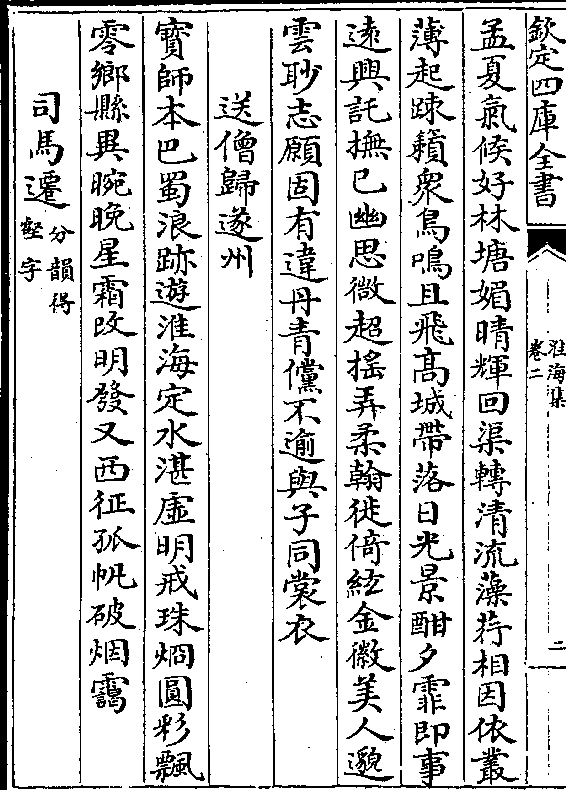 欽定四庫全書
淮海集
卷二
二
孟夏氣候好林塘媚晴輝回渠轉清流藻荇相因依叢
薄起踈籟衆鳥鳴且飛髙城帶落日光景酣夕霏即事
遠興託撫已幽思微超摇弄柔翰徙倚絃金徽美人邈
雲眇志願固有違丹青儻不逾與子同裳衣
送僧歸遂州
寳師本巴蜀浪跡遊淮海定水湛虚明戒珠烱圓彩飄
零鄉縣異晼晚星霜改明發又西征孤帆破烟靄
司馬遷分韻得壑字